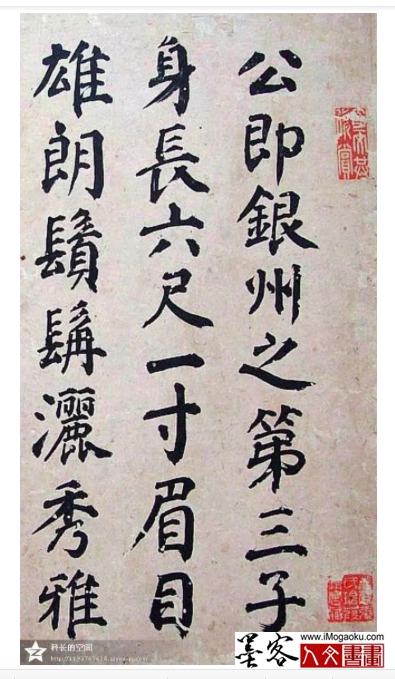 公即銀州之第三子
身長六尺一寸眉目
雄朗鬚鬢灑秀雅
www.iMogaoku.com
墨客
人文書畫